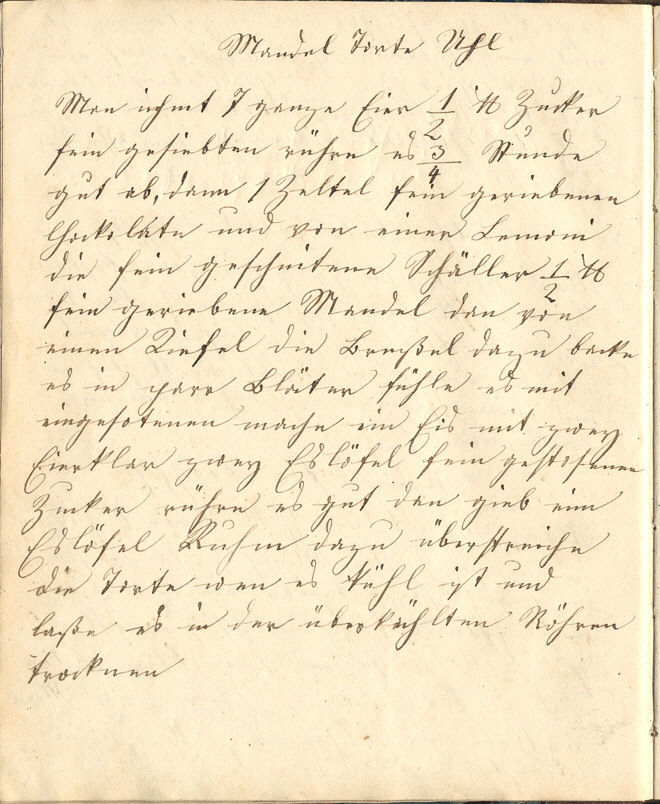 Mandel Torte Uhl
Man nihmt 7 ganze Eier 1/2 ℔ Zucker
fein gesiebten rühre es 3/4 Stunde
gut ab, dann 1 Zeltel fein geriebenen
Chockolate und von einer Lemoni
die fein geschnitene Schäller 1/2 ℔
fein geriebene Mandel dan von
einen Kiefel die Breßel dazu backe
es in parr Bläter fühle es mit
eingesotenen mache ein Eis mit zwey
Eierklar zwey Eslöfel fein gestosenen
Zucker rühre es gut dan gieb ein
Eslöfel Ruhm dazu überstreiche
die Torte wen es kühl ist und
laße es in der überkühlten Röhren
trocknen